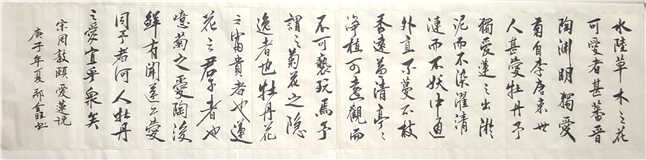 水陸草木之花
可愛者甚蕃晋
陶渊明獨愛
菊自李唐来世
人甚愛牡丹予
獨愛蓮之出淤
泥而不染濯清
漣而不妖中通
外直不蔓不枝
香遠益清亭〻
净植可遠觀而
不可褻玩焉予
謂之菊花之隐
逸者也牡丹花
之富貴者也蓮
花之君子者也
噫菊之愛陶後
鮮有聞蓮之愛
同予者何人牡丹
之愛宜乎衆矣
宋周敦頤愛蓮説
庚子年夏邢書